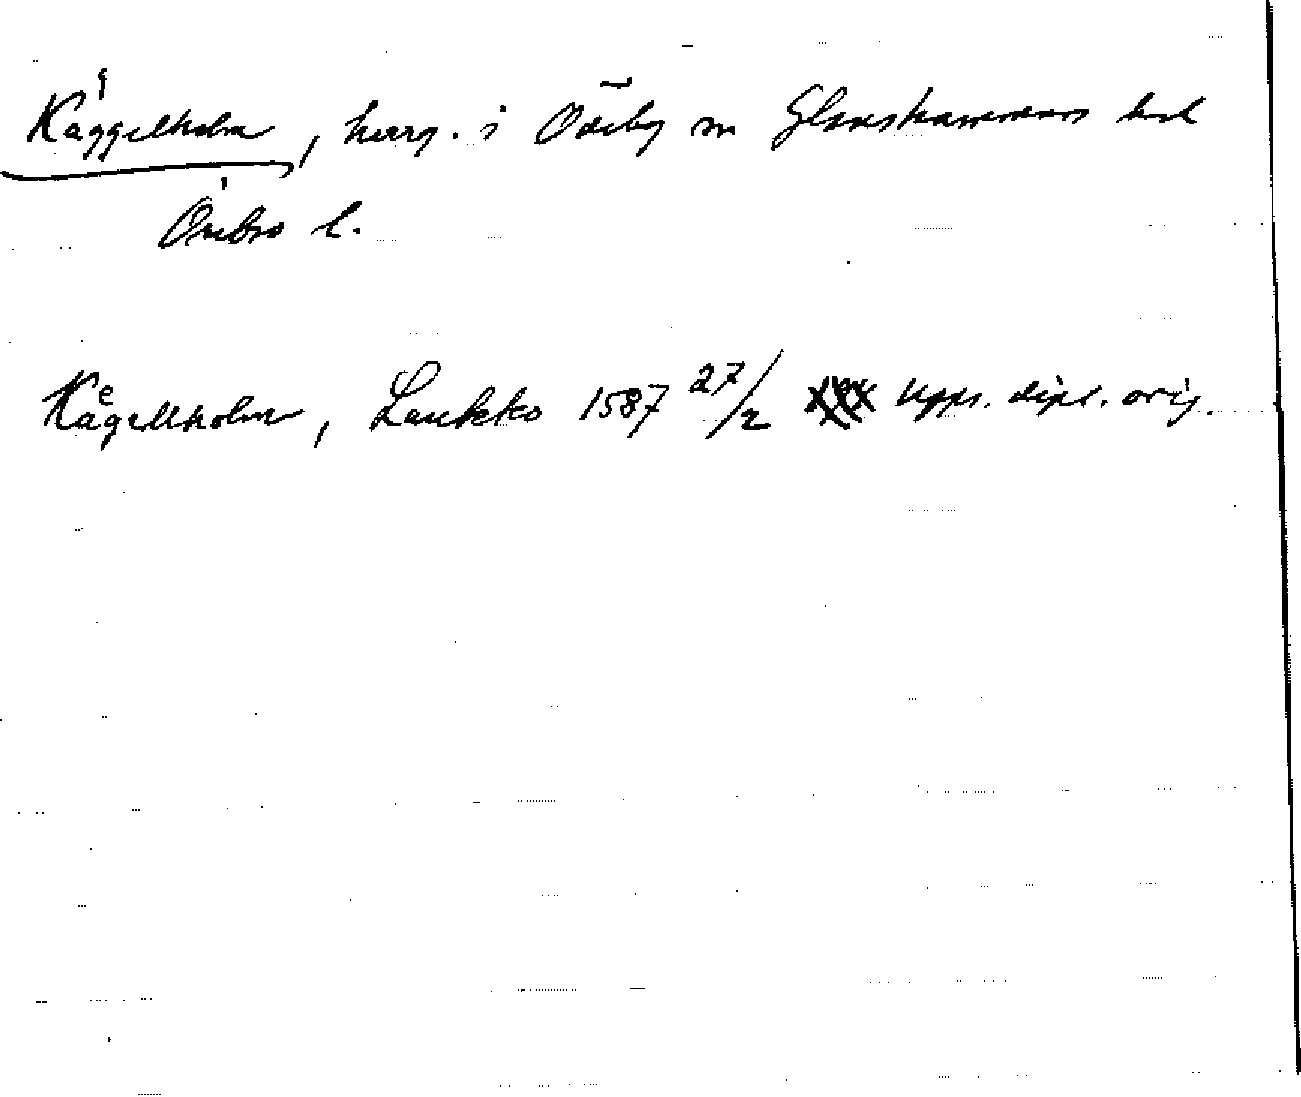 Käggelholm, herrg. i Ödeby sn Glanshammars hd
Örebro l.
Kågellholm, Laukko 1587 27/2 Upps. dipl. orig.